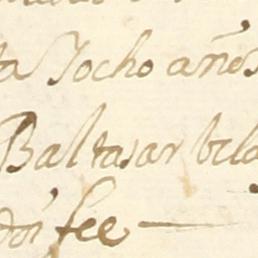 ta Yocho años
Baltasar bela
doi fee